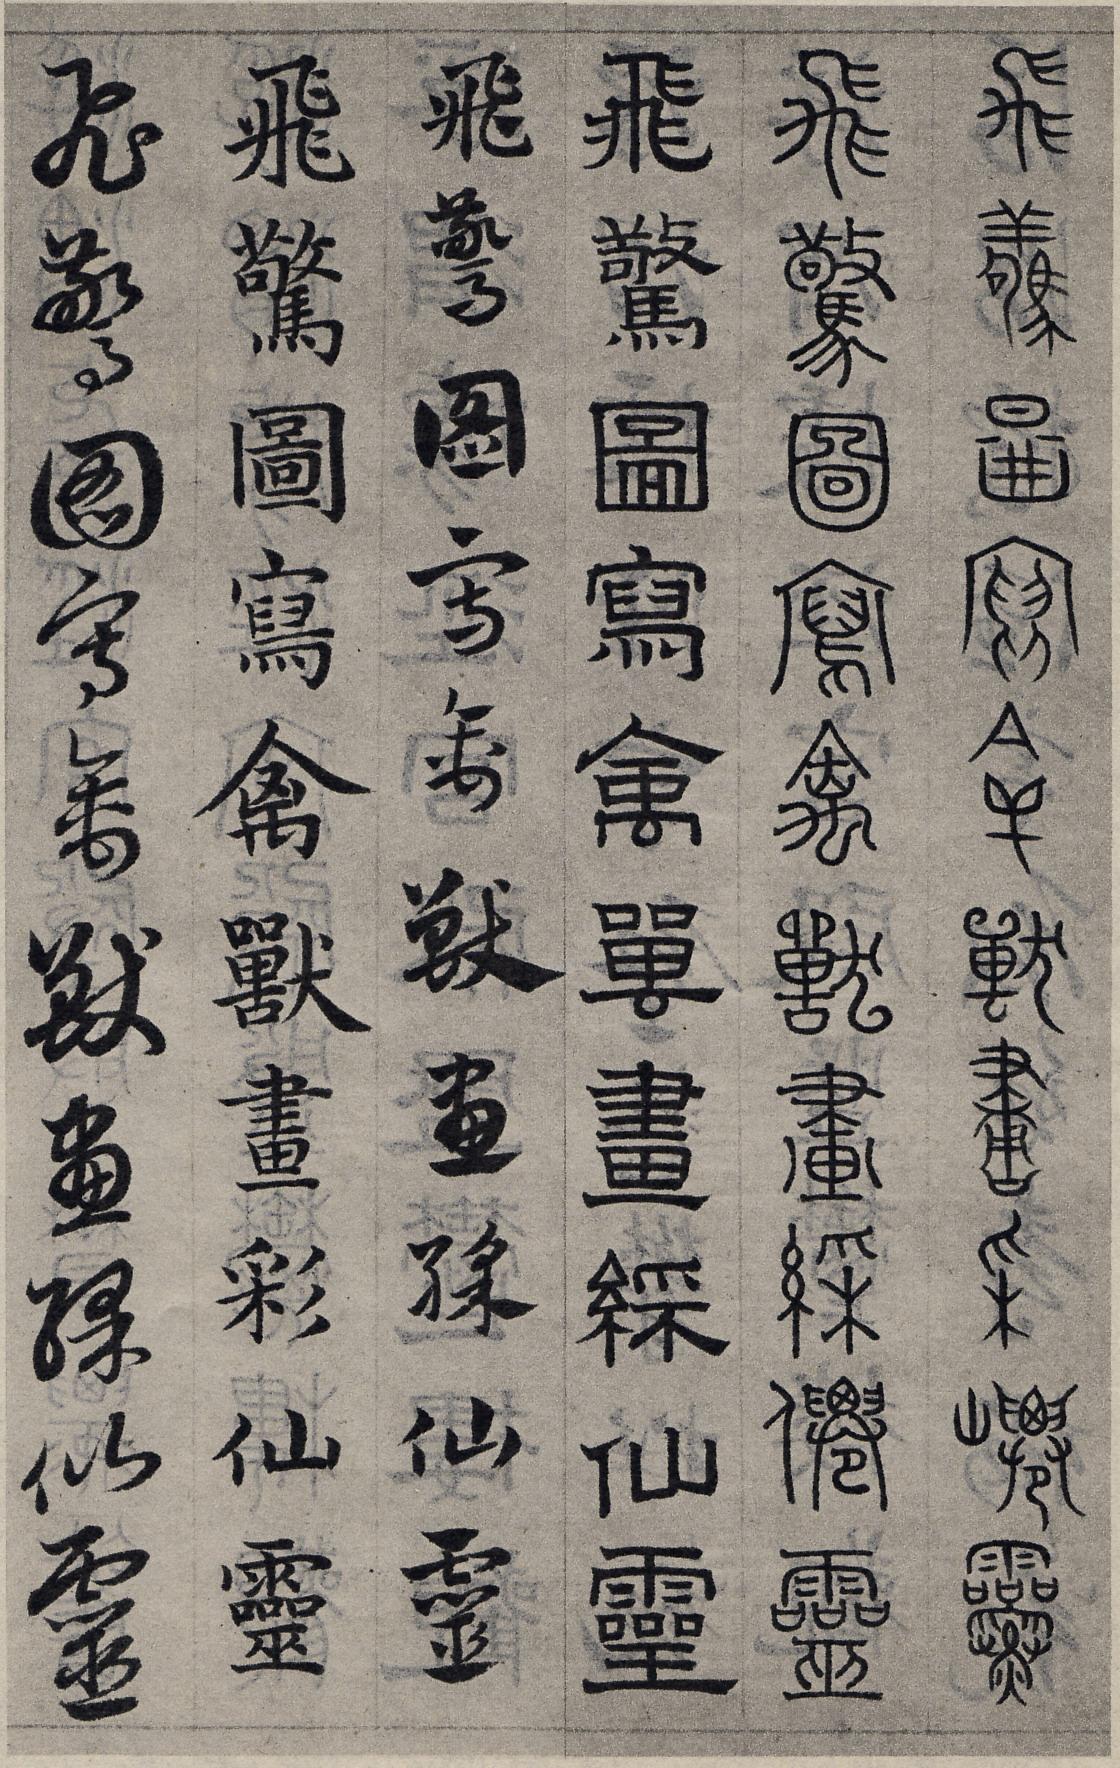 飛驚圖寫禽獸畫采仙靈
飛驚圖寫禽獸畫綵僊靈
飛驚圖寫禽單畫綵仙靈
飛驚圖寫禽獸畫綵仙靈
飛驚圖寫禽獸畫彩仙靈
飛驚圖寫禽獸畫綵仙靈